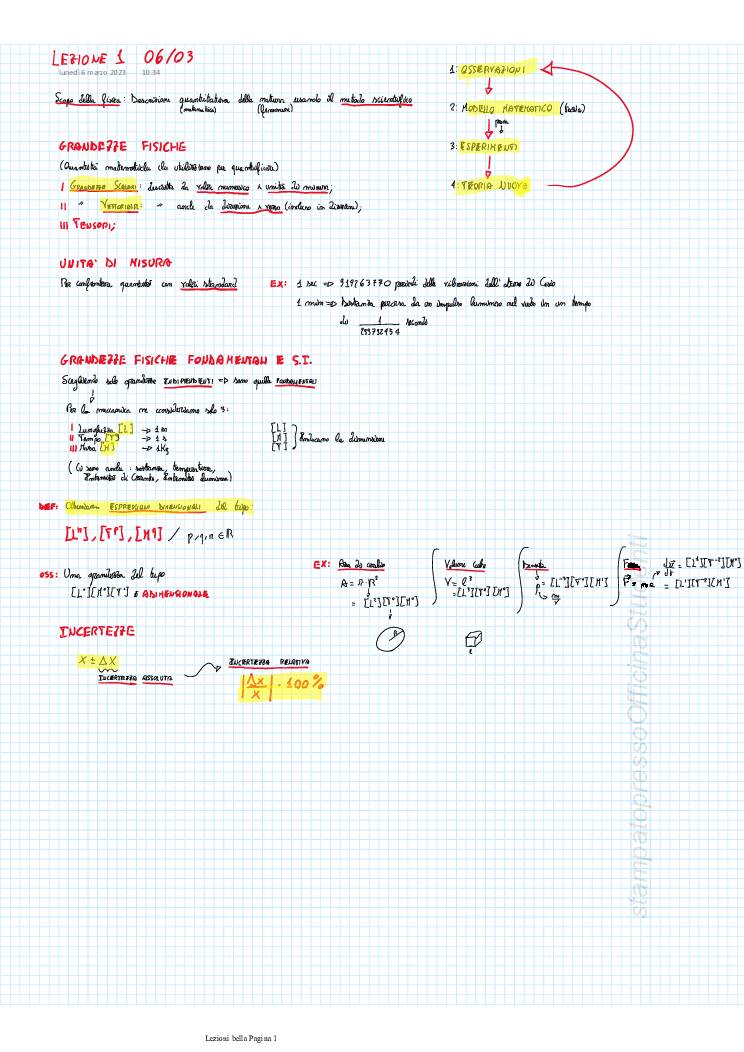 LEZIONE 1 06/03
lunedì 6 marzo 2023 10:34
Scopo della fisica: Descrizione quantitativa della natura usando il metodo scientifico
(matematica) (fenomeni)
1: OSSERVAZIONI
2: MODELLO MATEMATICO (teoria)
3: ESPERIMENTI
4: TEORIA NUOVA
GRANDEZZE FISICHE
(Quantità matematiche che utilizziamo per quantificare)
I Grandezze Scalari: descritte da valore numerico e unità di misura;
II " Vettoriali: " anche da direzione e verso (incluso in direzione);
III Tensori;
UNITA' DI MISURA
Per confrontare quantità con valori standard
EX: 1 sec => 919263770 periodi della vibrazione dell'atomo di Cesio
1 metro => Distanza percorsa da un impulso luminoso nel vuoto in un tempo
di 1/299792454 secondi
GRANDEZZE FISICHE FONDAMENTALI E S.I.
Scegliendo solo grandezze INDIPENDENTI => sono quelle FONDAMENTALI
Per la meccanica ne consideriamo solo 3:
I Lunghezza [L] -> 1 m
II Tempo [T] -> 1 s
III Massa [M] -> 1 Kg
[L]
[M]
[T]
} Indicano la dimensione
(Ci sono anche: sostanza, temperatura,
Intensità di Corrente, Intensità luminosa)
DEF: Otteniamo ESPRESSIONI DIMENSIONALI del tipo:
[Lⁿ], [Tᵖ], [M^q] / p, q, n ∈ ℝ
OSS: Una grandezza del tipo
[L⁰][M⁰][T⁰] è ADIMENSIONALE
EX: Area di cerchio
A = π·R²
= [L²][T⁰][M⁰]
R
Volume cubo
V = l³
= [L³][T⁰][M⁰]
l
Densità
ρ = [L⁻³][T⁰][M¹]
m/V
Forza
F = m·a
dv/dt = [L¹][T⁻²][M⁰]
= [L¹][T⁻²][M¹]
INCERTEZZE
X ± ΔX
INCERTEZZA ASSOLUTA
INCERTEZZA RELATIVA
|Δx/x| · 100%
stampatopressoOfficinaStudenti
Lezioni bella Pagina 1